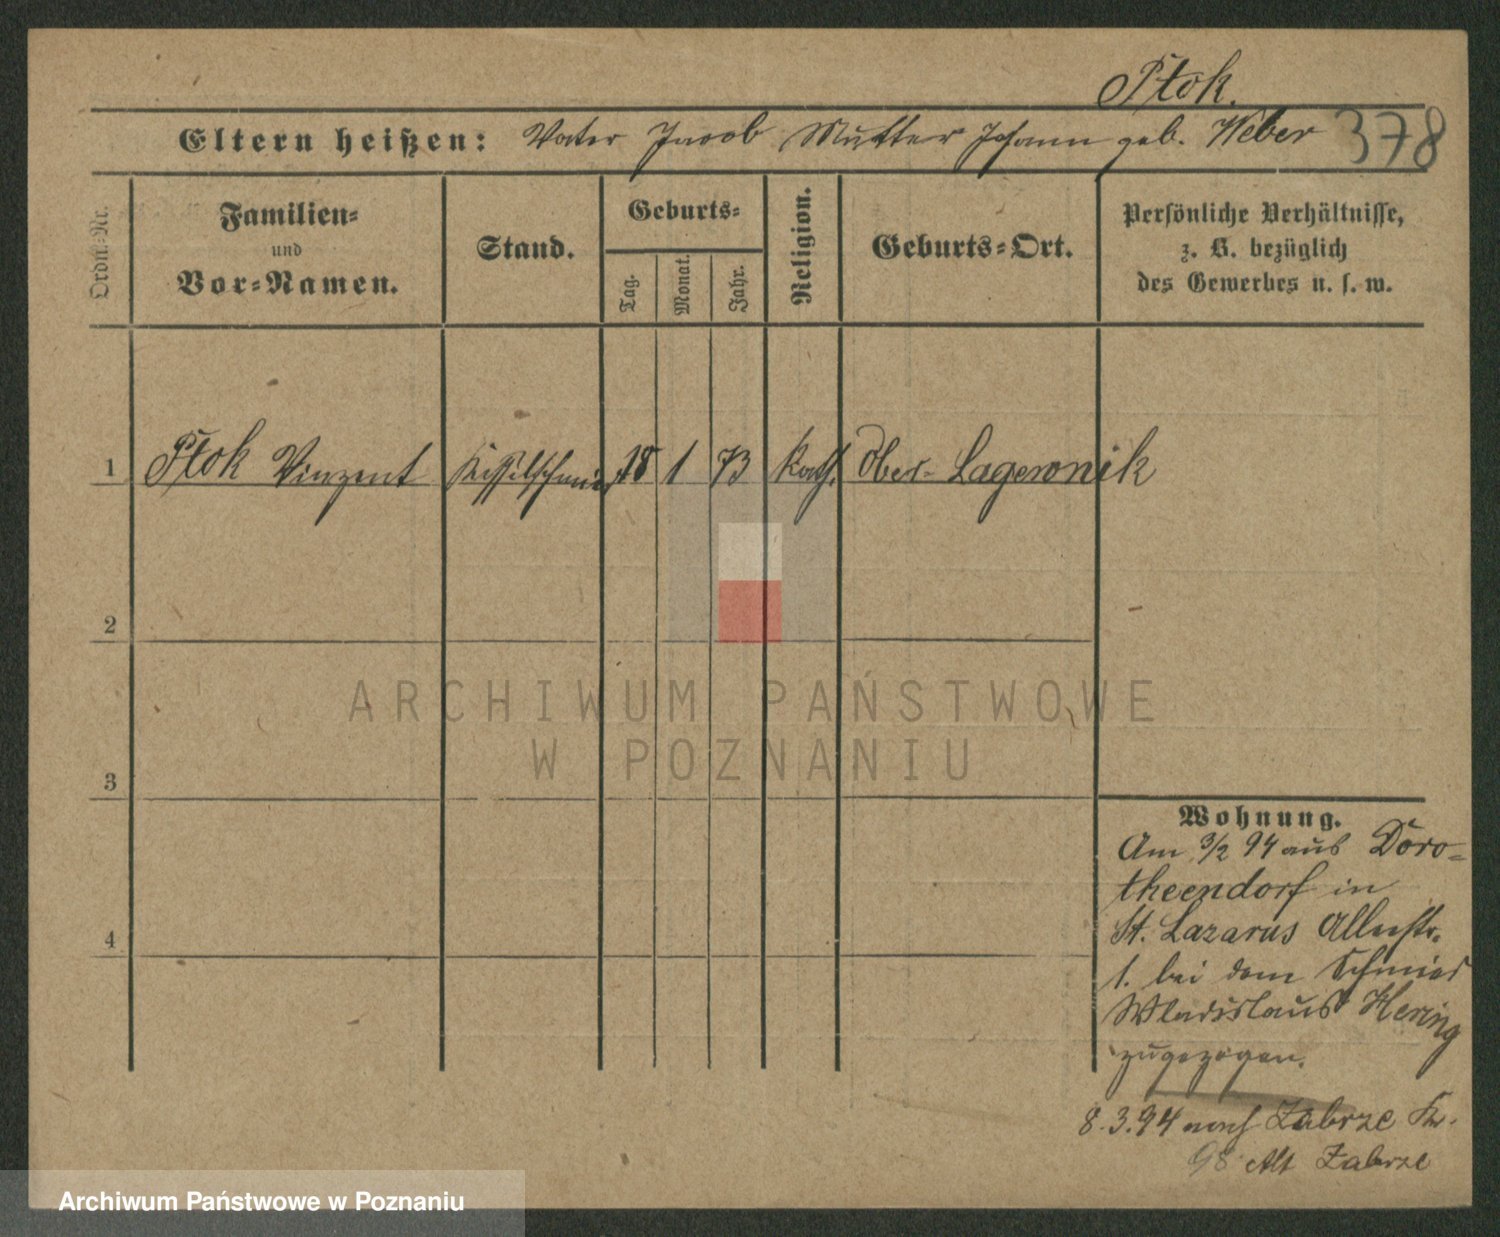 Ptok.
Eltern heißen: Vater Jacob Mutter Johann geb. Weber 378
Ordn.-Nr.
Familien-
und
Vor-Namen.
Stand.
Geburts-
Tag.
Monat.
Jahr.
Religion.
Geburts-Ort.
Persönliche Verhältnisse,
z. B. bezüglich
des Gewerbes u. s. w.
1 Ptok Vinzent Kesselschmied 18 1 73 kath. Ober-Lagewnik
2
3
4
ARCHIWUM PAŃSTWOWE
W POZNANIU
Wohnung.
Am 3/2 94 aus Doro-
theendorf in
St. Lazarus Allerstr.
1. bei dem Schmied
Wladislaus Hering
zugezogen.
8.3.94 nach Zabrze Kr.
98 Alt Zabrze
Archiwum Państwowe w Poznaniu